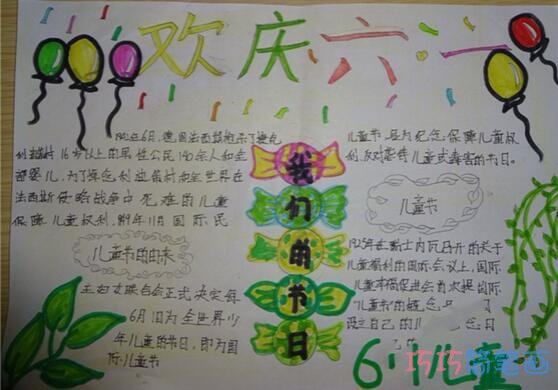 欢庆六·一
1942年6月,德国法西斯枪杀了捷克
利迪村16岁以上的男性公民140余人和全
部婴儿,为了悼念利迪村和全世界在
法西斯侵略战争中死难的儿童
保障儿童权利,1949年11月国际民
儿童节的由来
主妇女联合会正式决定每
6月1日为全世界少
年儿童的节日,即为国
际儿童节
我们的节日
儿童节,是为纪念,保障儿童权
利,反对虐待儿童或毒害的节日。
儿童节
1925年在瑞士日内瓦召开的关于
儿童福利的国际会议上,国际
儿童幸福促进会首次提出
"儿童节"的概念
设立自己的儿 念日
6·1儿童
巧巧简笔画